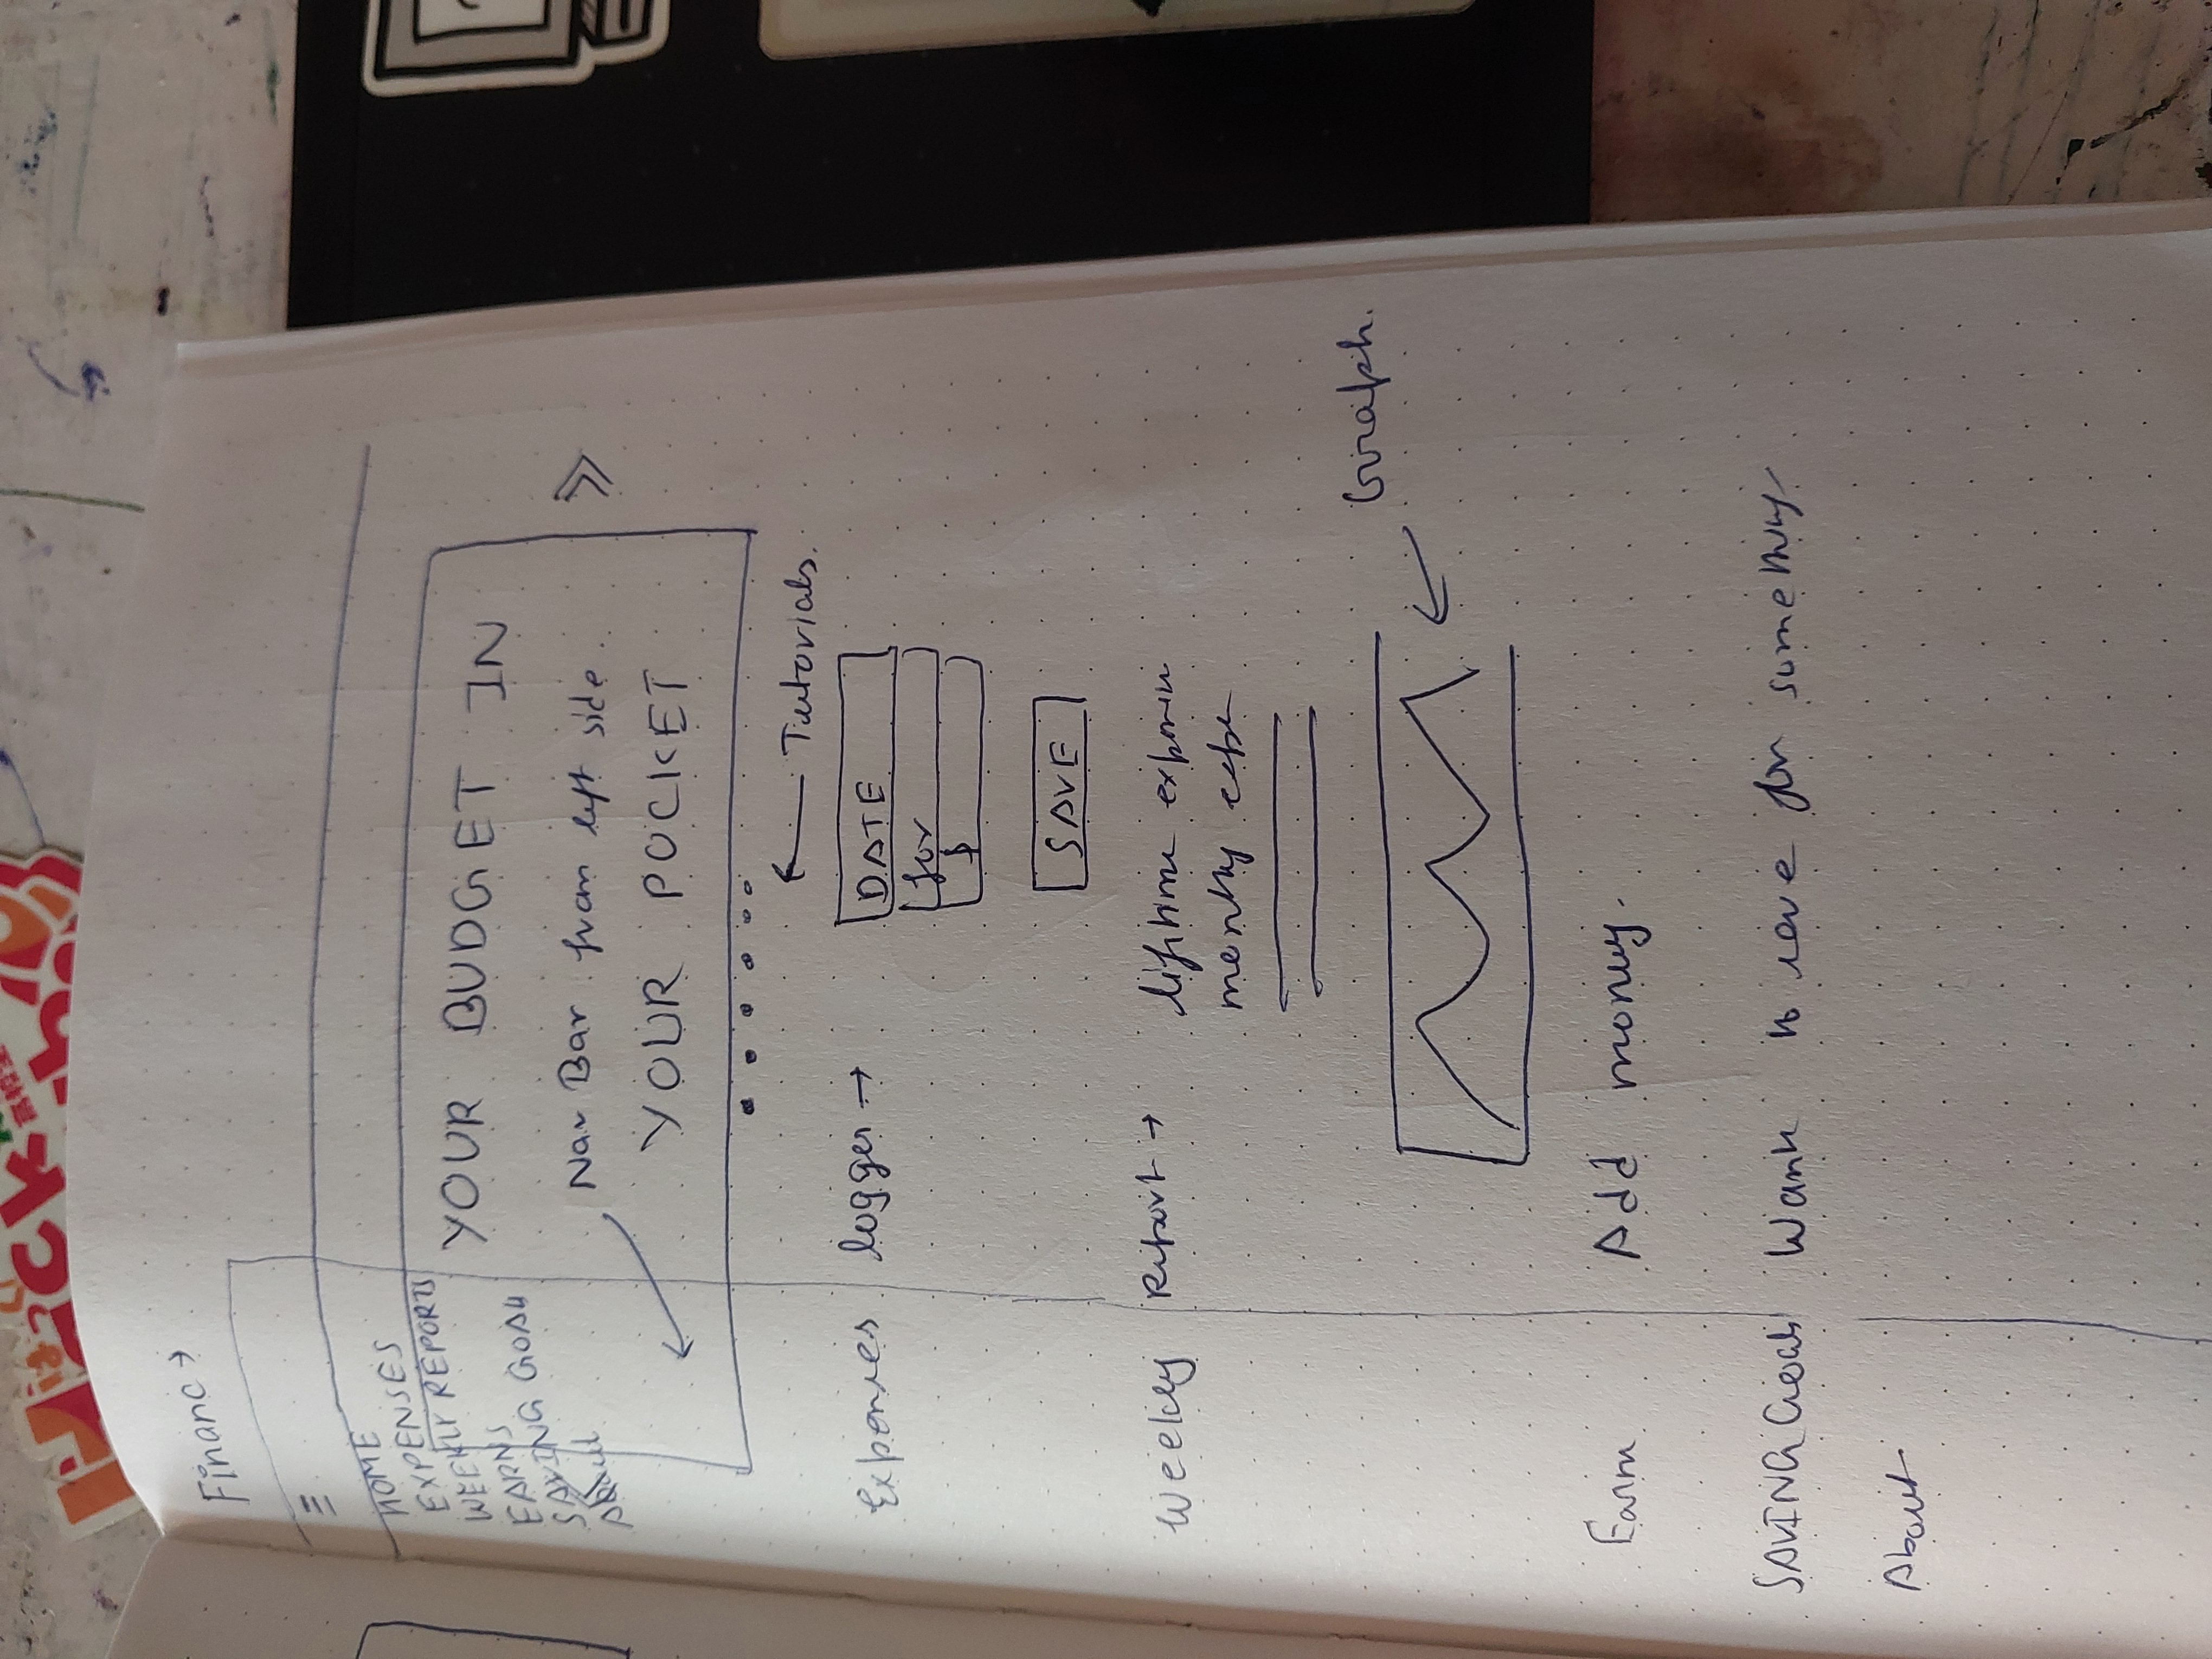 Hack
はっく
高校生
Financ →
HOME
EXPENSES
WEEKLY REPORTS
EARNS
SAVING GOALS
About
YOUR BUDGET IN
Nav Bar from left side
YOUR POCKET
Tutorials.
Expenses logger →
DATE
for
$
SAVE
Weekly Report →
lifetime
monthly expe
Graph.
Earn Add money.
SAVING Goals Want to save for something
About